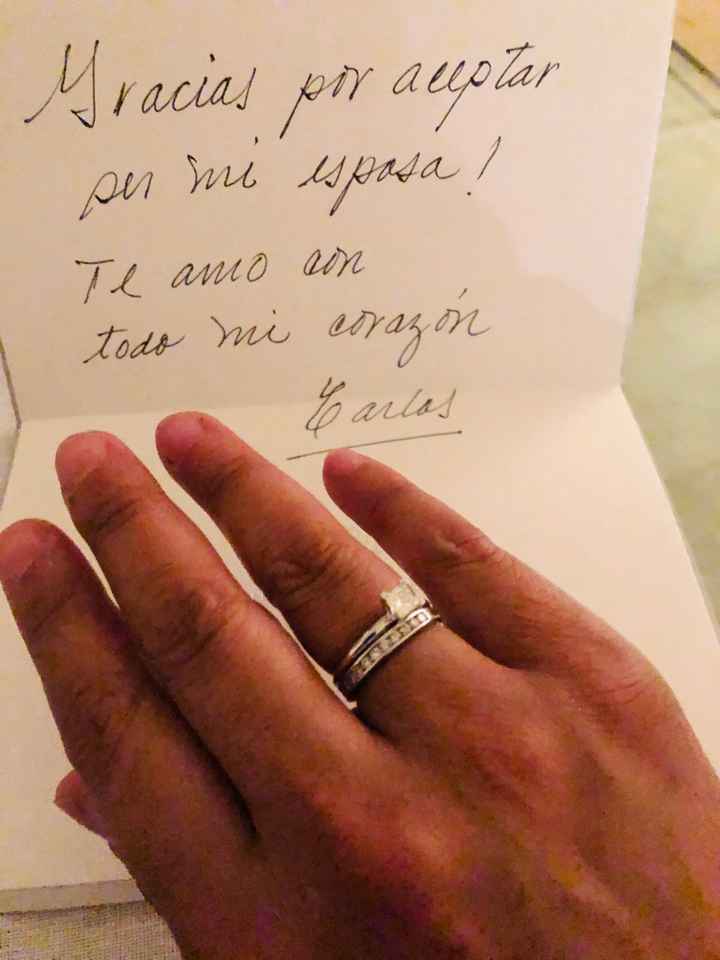 Gracias por aceptar
ser mi esposa!
Te amo con
todo mi corazón
Carlos